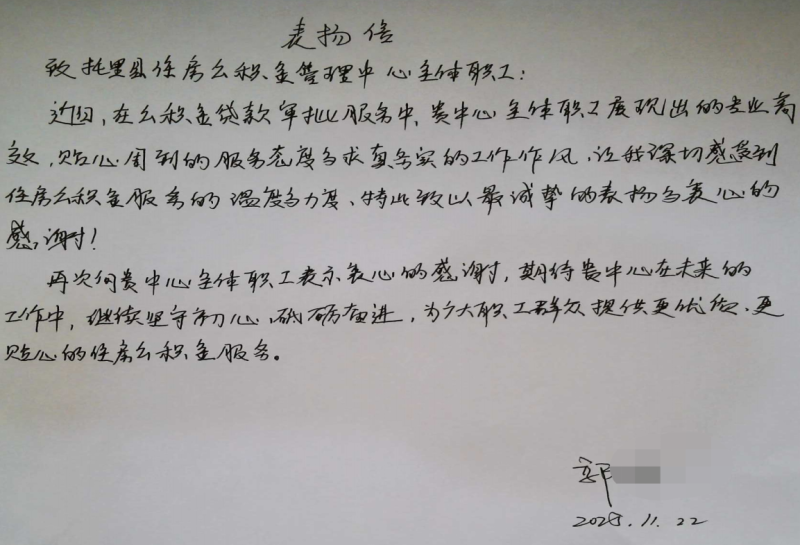 表扬信
致托里县住房公积金管理中心全体职工:
近日,在公积金贷款审批服务中,贵中心全体职工展现出的专业高
效、贴心周到的服务态度与求真务实的工作作风,让我深切感受到
住房公积金服务的温度与力度、特此致以最诚挚的表扬与衷心的
感谢!
再次向贵中心全体职工表示衷心的感谢,期待贵中心在未来的
工作中,继续坚守初心、砥砺奋进,为广大职工群众提供更优质、更
贴心的住房公积金服务。
郭
2025.11.22